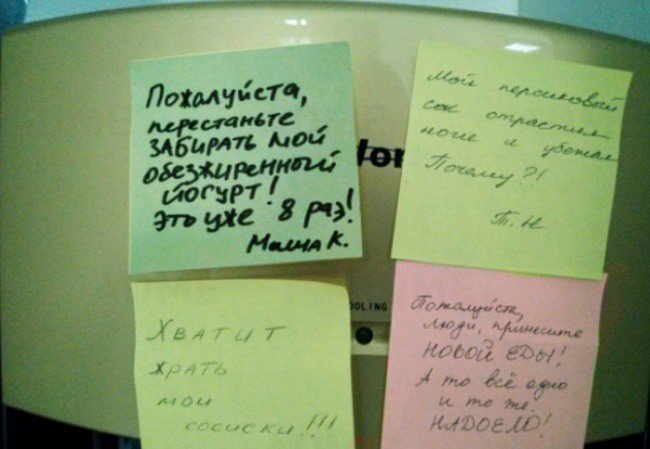 Пожалуйста,
перестаньте
ЗАБИРАТЬ МОЙ
обезжиренный
йогурт!
Это уже 8 раз!
Маша К.
Мой персиковый
сок отрастил
ноги и убежал
Почему?!
Т. Н
ХВАТИТ
ЖРАТЬ
МОИ
СОСИСКИ!!!
Пожалуйста,
люди, принесите
НОВОЙ ЕДЫ!
А то всё одно
и то же.
НАДОЕЛО!